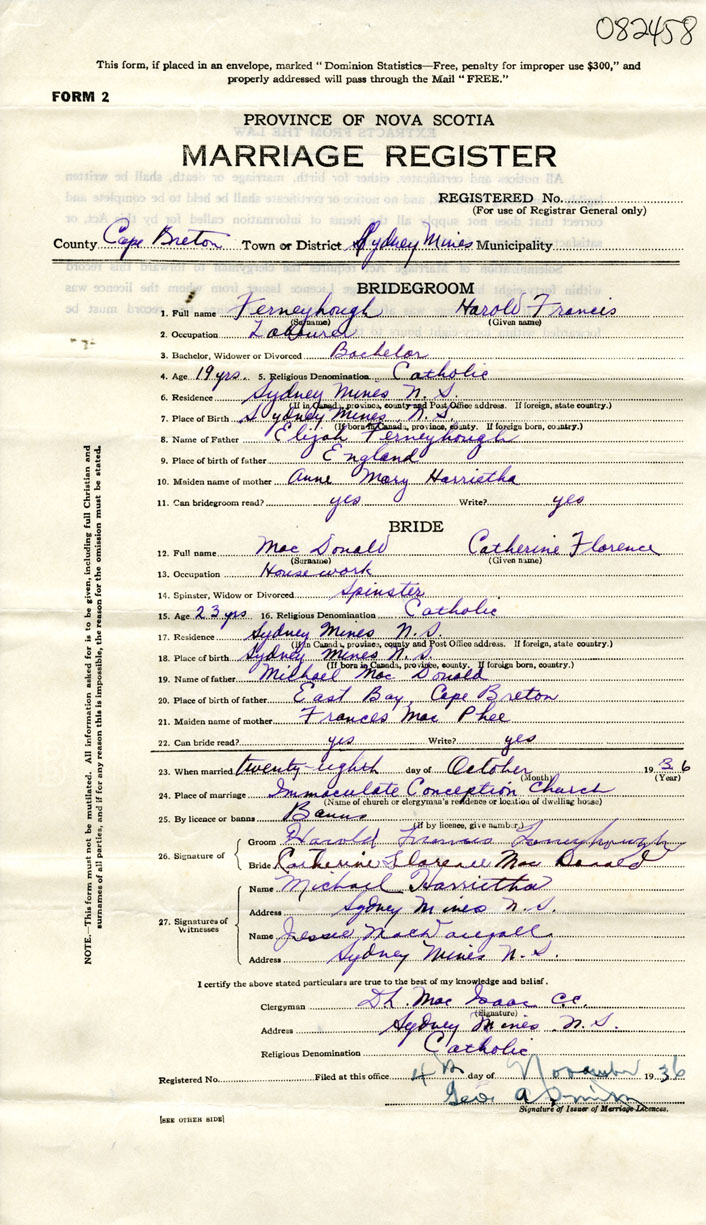 082458
This form, if placed in an envelope, marked “Dominion Statistics—Free, penalty for improper use $300,” and
properly addressed will pass through the Mail “FREE.”
FORM 2
PROVINCE OF NOVA SCOTIA
MARRIAGE REGISTER
REGISTERED No.
(For use of Registrar General only)
County Cape Breton Town or District Sydney Mines Municipality
BRIDEGROOM
1. Full name Ferneyhough Harold Francis
(Surname) (Given name)
2. Occupation Labourer
3. Bachelor, Widower or Divorced Bachelor
4. Age 19 yrs. 5. Religious Denomination Catholic
6. Residence Sydney Mines N.S.
(If in Canada, province, county and Post Office address. If foreign, state country.)
7. Place of Birth Sydney Mines N.S.
(If born in Canada, province, county. If foreign born, country.)
8. Name of Father Elijah Ferneyhough
9. Place of birth of father England
10. Maiden name of mother Anne Mary Harrietha
11. Can bridegroom read? yes Write? yes
BRIDE
12. Full name Mac Donald Catherine Florence
(Surname) (Given name)
13. Occupation House work
14. Spinster, Widow or Divorced Spinster
15. Age 23 yrs 16. Religious Denomination Catholic
17. Residence Sydney Mines N.S.
(If in Canada, province, county and Post Office address. If foreign, state country.)
18. Place of birth Sydney Mines N.S.
(If born in Canada, province, county. If foreign born, country.)
19. Name of father Michael Mac Donald
20. Place of birth of father East Bay, Cape Breton
21. Maiden name of mother Frances Mac Phee
22. Can bride read? yes Write? yes
23. When married twenty-eighth day of October 1936
(Month) (Year)
24. Place of marriage Immaculate Conception Church
(Name of church or clergyman's residence or location of dwelling house)
25. By licence or banns Banns
(If by licence, give number)
26. Signature of
Groom Harold Francis Ferneyhough
Bride Catherine Florence Mac Donald
27. Signatures of Witnesses
Name Michael Harrietha
Address Sydney Mines N.S.
Name Jessie MacDougall
Address Sydney Mines N.S.
I certify the above stated particulars are true to the best of my knowledge and belief.
Clergyman Mac Isaac cc.
(Signature)
Address Sydney Mines N.S.
Religious Denomination Catholic
Registered No. Filed at this office 4th day of November 1936
Geo. A
Signature of Issuer of Marriage Licences.
[SEE OTHER SIDE]
NOTE.—This form must not be mutilated. All information asked for is to be given, including full Christian and
surnames of all parties, and if for any reason this is impossible, the reason for the omission must be stated.